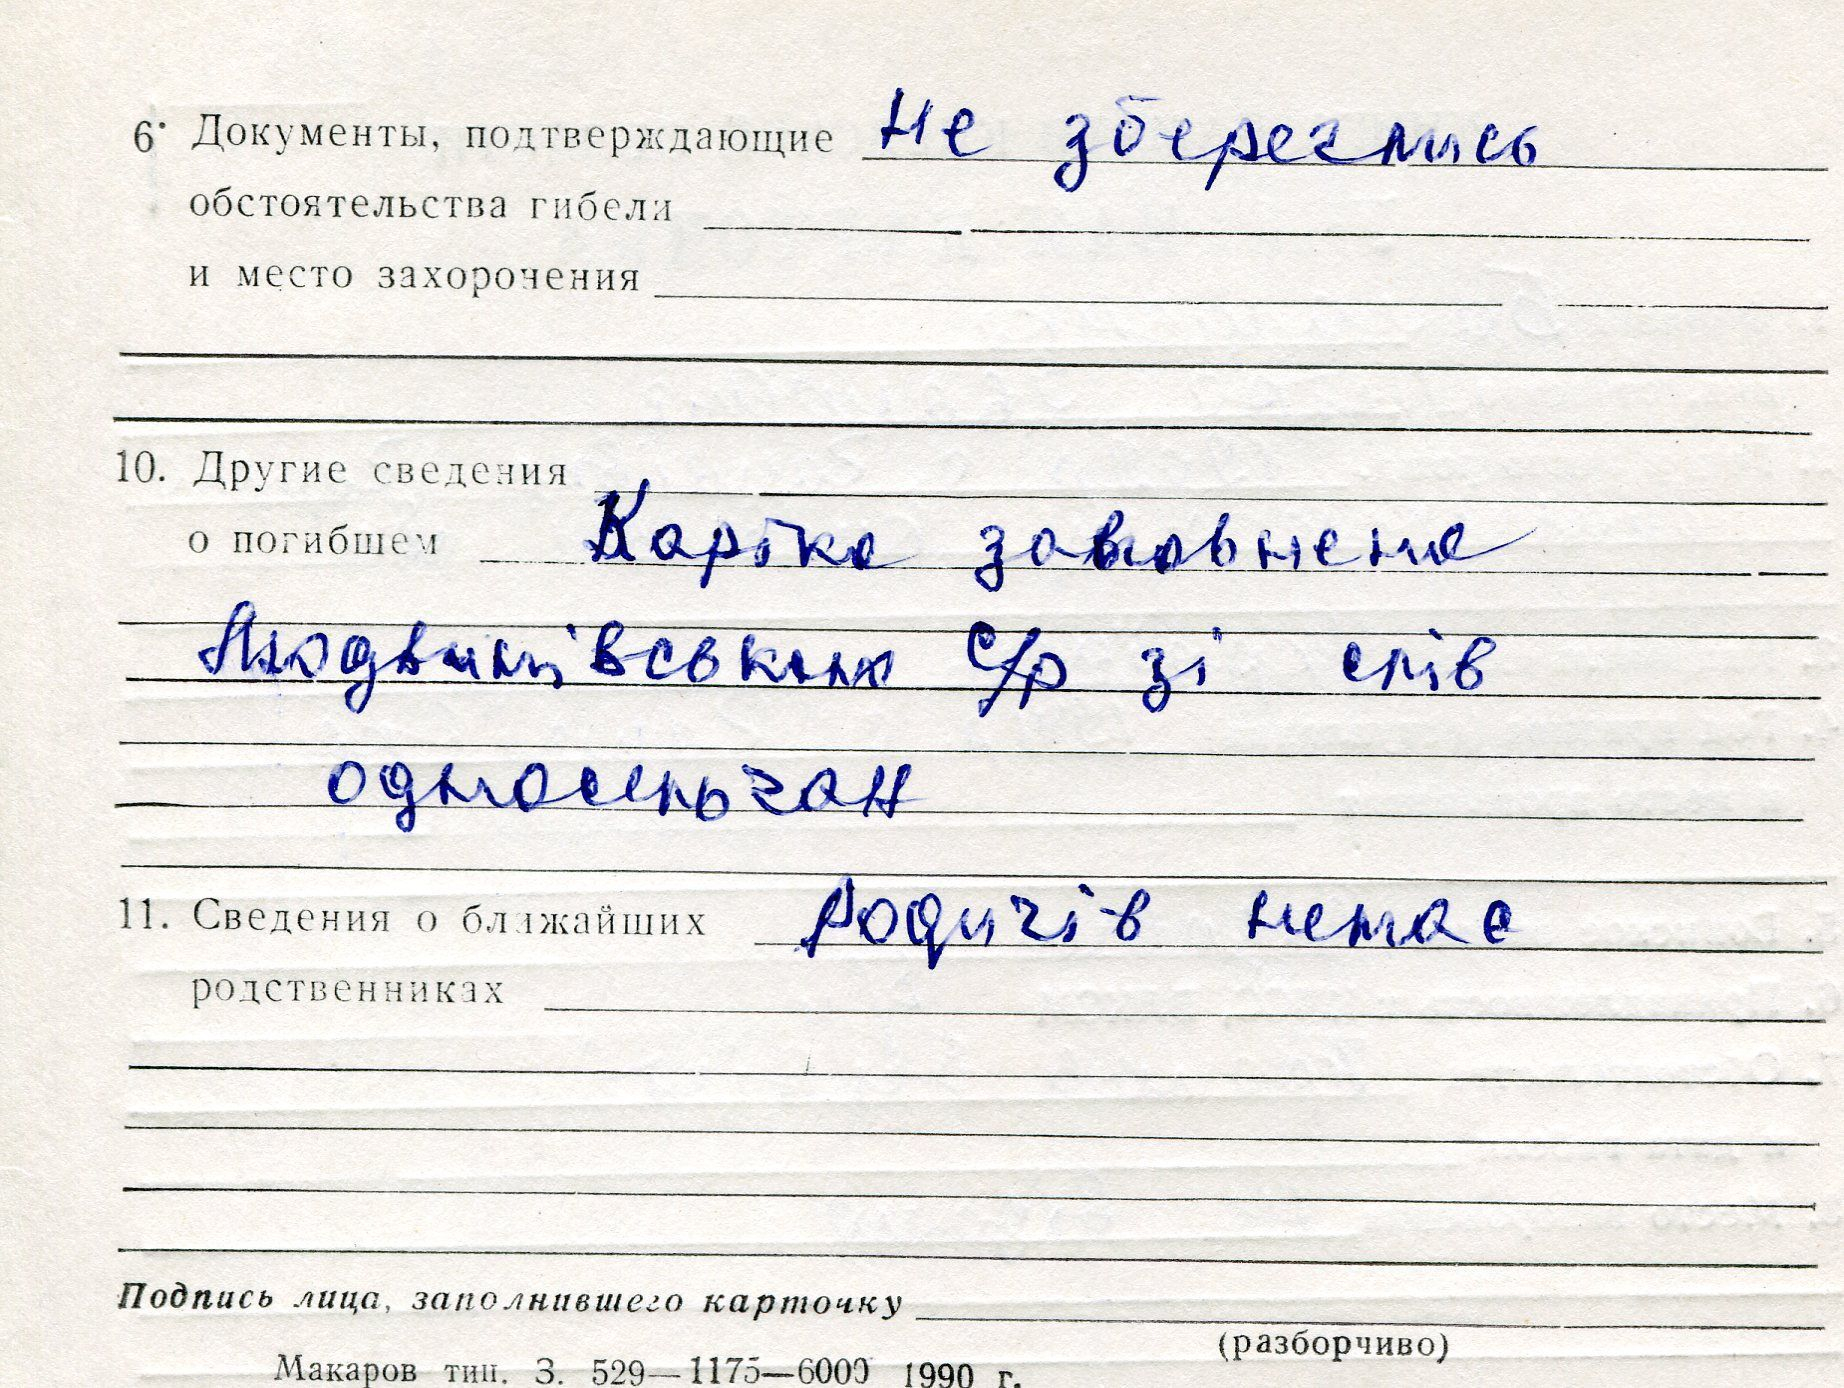 6. Документы, подтверждающие Не збереглись
обстоятельства гибели
и место захоронения
10. Другие сведения
о погибшем Картка заповнена
Людвинівською с/р зі слів
односельчан
11. Сведения о ближайших Родичів немає
родственниках
Подпись лица, заполнившего карточку
(разборчиво)
Макаров тип. З. 529—1175—6000 1990 г.